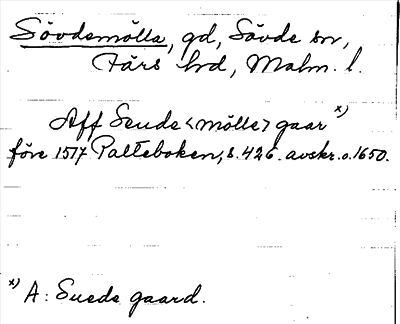 Sövdemölla, gd, Sövde sn,
Färs hd, Malm. l.
Aff Seude <mölle> gaar x)
före 1517 Palteboken, s. 426. avskr. o. 1650.
x) A: Suede gaard.